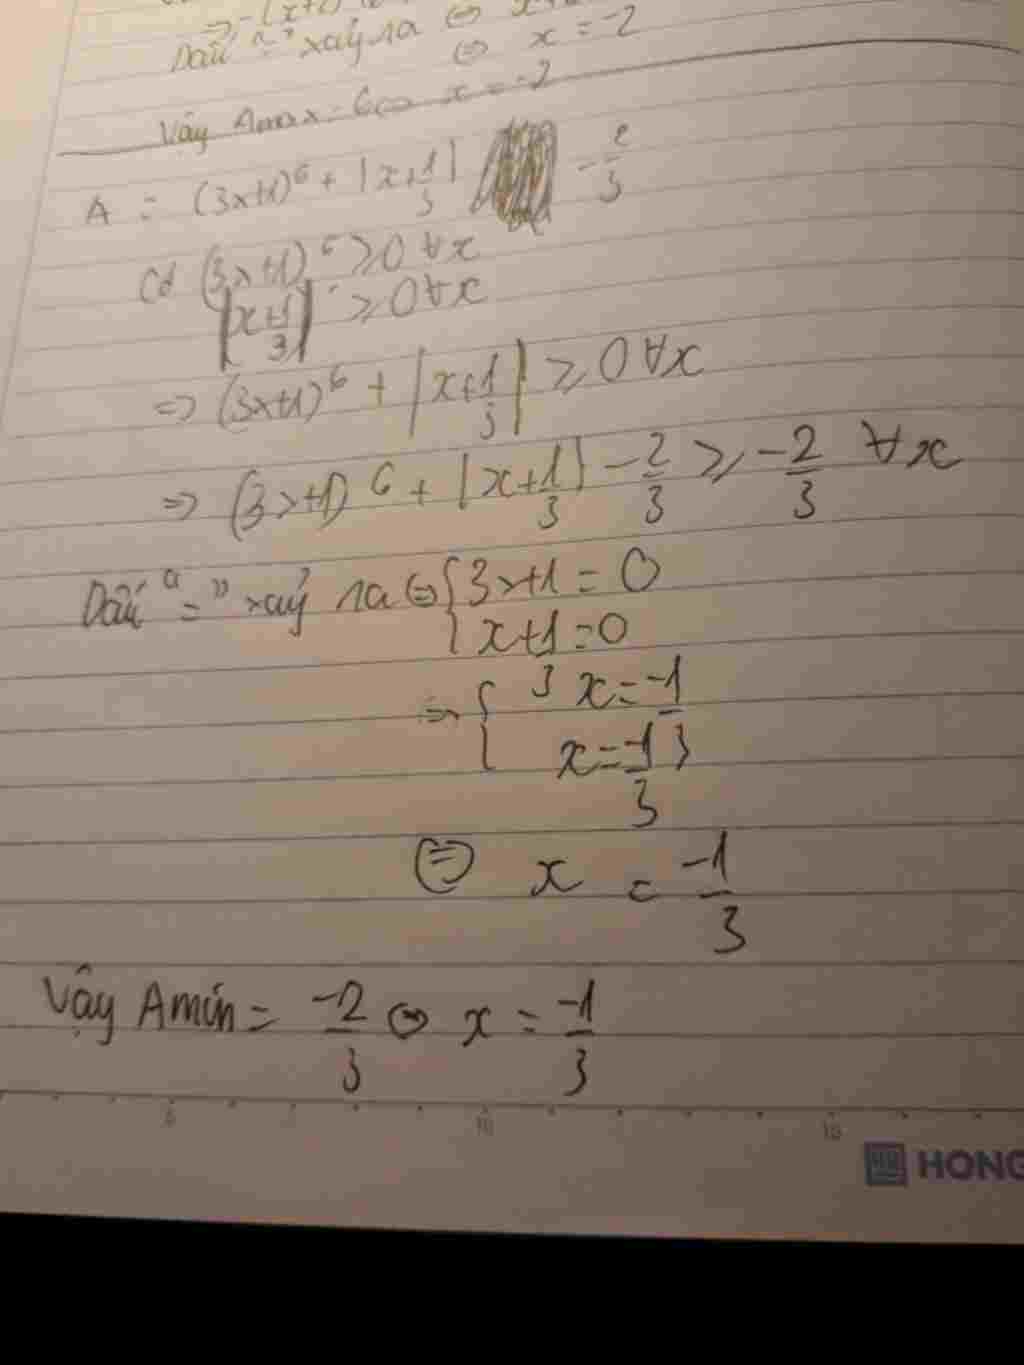 ⇒ -(x+2)
Dấu "=" xảy ra ⇔
⇔ x = -2
Vậy Amax = 6 ⇔ x = -2
A = (3x+1)^6 + |x+1/3| - 2/3
Có (3x+1)^6 ≥ 0 ∀x
|x+1/3| ≥ 0 ∀x
⇒ (3x+1)^6 + |x+1/3| ≥ 0 ∀x
⇒ (3x+1)^6 + |x+1/3| - 2/3 ≥ -2/3 ∀x
Dấu "=" xảy ra ⇔ { 3x+1 = 0
x+1/3 = 0
⇒ { x = -1/3
x = -1/3
⇔ x = -1/3
Vậy Amin = -2/3 ⇔ x = -1/3
5 10 15
HONG